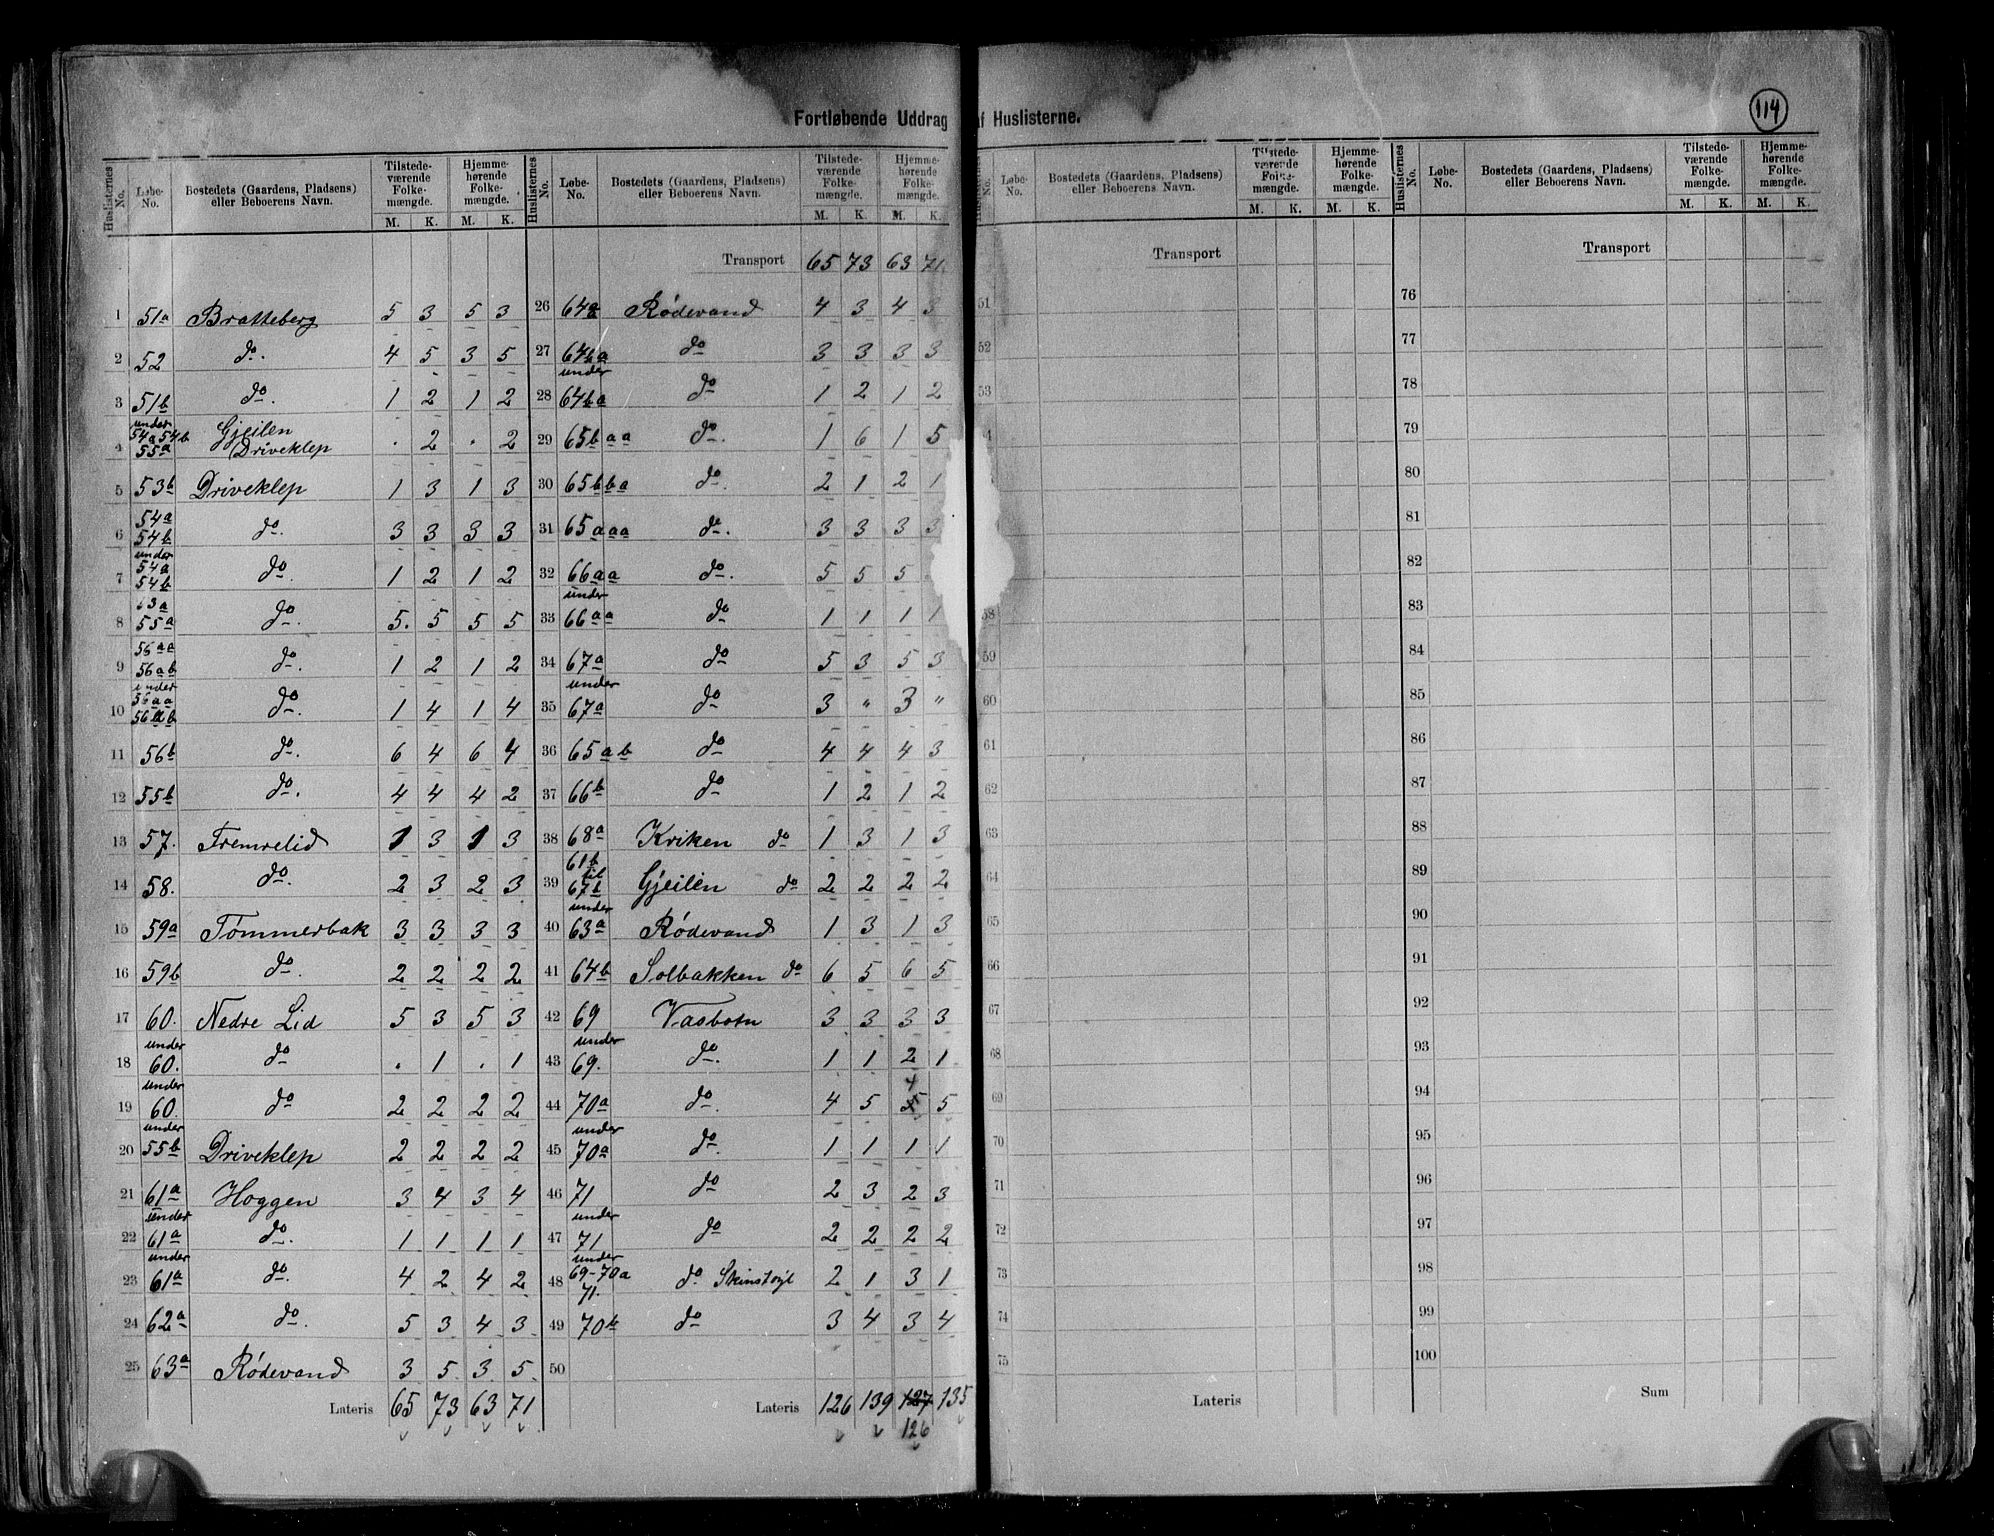 114
Fortløbende Uddrag af Huslisterne.
Huslisternes No. Løbe-No. Bostedets (Gaardens, Pladsens) eller Beboerens Navn. Tilstedeværende Folkemængde. M. K. Hjemmehørende Folkemængde. M. K.
1 51a Bratteberg 5 3 5 3
2 52 do. 4 5 3 5
3 51b do. 1 2 1 2
4 under 54a 54b 55a Gjeilen Driveklep . 2 . 2
5 53b Driveklep 1 3 1 3
6 54a 54b do. 3 3 3 3
7 under 54a 54b do. 1 2 1 2
8 53a 55a do. 5. 5 5 5
9 56aa 56ab do. 1 2 1 2
10 under 56aa 56ab do. 1 4 1 4
11 56b do. 6 4 6 4
12 55b do. 4 4 4 2
13 57. Fremrelid 1 3 1 3
14 58. do. 2 3 2 3
15 59a Tømmerbak 3 3 3 3
16 59b do. 2 2 2 2
17 60. Nedre Lid 5 3 5 3
18 under 60. do . 1 . 1
19 under 60. do 2 2 2 2
20 under 55b Driveklep 2 2 2 2
21 61a Hoggen 3 4 3 4
22 under 61a do. 1 1 1 1
23 under 61a do. 4 2 4 2
24 62a do. 5 3 4 3
25 63a Rødevand 3 5 3 5
Lateris 65 73 63 71
Huslisternes No. Løbe-No. Bostedets (Gaardens, Pladsens) eller Beboerens Navn. Tilstedeværende Folkemængde. M. K. Hjemmehørende Folkemængde. M. K.
Transport 65 73 63 71
26 64a Rødevand 4 3 4 3
27 64ba do 3 3 3 3
28 under 64ba do 1 2 1 2
29 65baa do. 1 6 1 5
30 65bba do. 2 1 2 1
31 65aaa do. 3 3 3 3
32 66aa do. 5 5 5
33 under 66aa do 1 1 1 1
34 67a do 5 3 5 3
35 under 67a do 3 " 3 "
36 65ab do 4 4 4 3
37 66b do 1 2 1 2
38 68a Kriken do 1 3 1 3
39 61b til 67b Gjeilen do 2 2 2 2
40 under 63a Rødevand 1 3 1 3
41 64b Solbakken do 6 5 6 5
42 69 Vasbotn 3 3 3 3
43 under 69. do. 1 1 2 1
44 70a do. 4 5 4 5 5
45 under 70a do. 1 1 1 1
46 71 do 2 3 2 3
47 under 71 do 2 2 2 2
48 under 69-70a 71. do 2 1 3 1
49 70b do 3 4 3 4
50
Lateris 126 139 127 135
126
Huslisternes No. Løbe-No. Bostedets (Gaardens, Pladsens) eller Beboerens Navn. Tilstedeværende Folkemængde. M. K. Hjemmehørende Folkemængde. M. K.
Transport
51
52
53
4
58
59
60
61
62
63
64
65
66
67
68
69
70
71
72
73
74
75
Lateris
Huslisternes No. Løbe-No. Bostedets (Gaardens, Pladsens) eller Beboerens Navn. Tilstedeværende Folkemængde. M. K. Hjemmehørende Folkemængde. M. K.
Transport
76
77
78
79
80
81
82
83
84
85
86
87
88
89
90
91
92
93
94
95
96
97
98
99
100
Sum